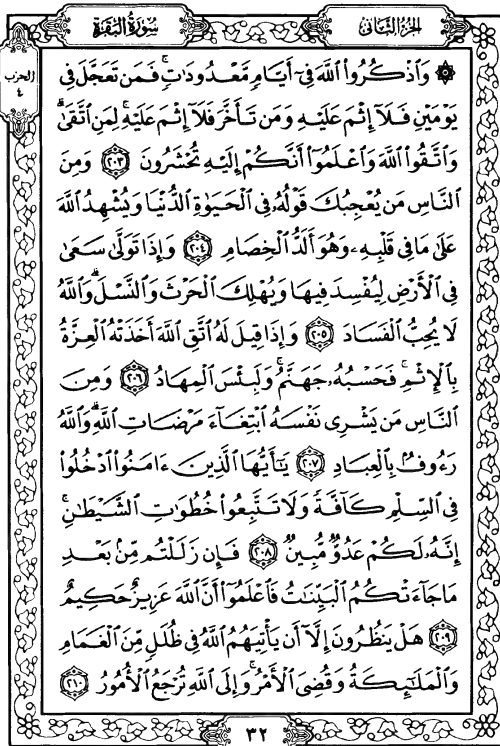 الجزء الثاني
سورة البقرة
الحزب
٤
۞ وَٱذۡكُرُوا۟ ٱللَّهَ فِىٓ أَيَّامٖ مَّعۡدُودَٰتٖۚ فَمَن تَعَجَّلَ فِى
يَوۡمَيۡنِ فَلَآ إِثۡمَ عَلَيۡهِ وَمَن تَأَخَّرَ فَلَآ إِثۡمَ عَلَيۡهِۚ لِمَنِ ٱتَّقَىٰۗ
وَٱتَّقُوا۟ ٱللَّهَ وَٱعۡلَمُوٓا۟ أَنَّكُمۡ إِلَيۡهِ تُحۡشَرُونَ ٢٠٣ وَمِنَ
ٱلنَّاسِ مَن يُعۡجِبُكَ قَوۡلُهُۥ فِى ٱلۡحَيَوٰةِ ٱلدُّنۡيَا وَيُشۡهِدُ ٱللَّهَ
عَلَىٰ مَا فِى قَلۡبِهِۦ وَهُوَ أَلَدُّ ٱلۡخِصَامِ ٢٠٤ وَإِذَا تَوَلَّىٰ سَعَىٰ
فِى ٱلۡأَرۡضِ لِيُفۡسِدَ فِيهَا وَيُهۡلِكَ ٱلۡحَرۡثَ وَٱلنَّسۡلَۗ وَٱللَّهُ
لَا يُحِبُّ ٱلۡفَسَادَ ٢٠٥ وَإِذَا قِيلَ لَهُ ٱتَّقِ ٱللَّهَ أَخَذَتۡهُ ٱلۡعِزَّةُ
بِٱلۡإِثۡمِۚ فَحَسۡبُهُۥ جَهَنَّمُۚ وَلَبِئۡسَ ٱلۡمِهَادُ ٢٠٦ وَمِنَ
ٱلنَّاسِ مَن يَشۡرِى نَفۡسَهُ ٱبۡتِغَآءَ مَرۡضَاتِ ٱللَّهِۗ وَٱللَّهُ
رَءُوفُۢ بِٱلۡعِبَادِ ٢٠٧ يَٰٓأَيُّهَا ٱلَّذِينَ ءَامَنُوا۟ ٱدۡخُلُوا۟
فِى ٱلسِّلۡمِ كَآفَّةٗ وَلَا تَتَّبِعُوا۟ خُطُوَٰتِ ٱلشَّيۡطَٰنِۚ
إِنَّهُۥ لَكُمۡ عَدُوّٞ مُّبِينٞ ٢٠٨ فَإِن زَلَلۡتُم مِّنۢ بَعۡدِ
مَا جَآءَتۡكُمُ ٱلۡبَيِّنَٰتُ فَٱعۡلَمُوٓا۟ أَنَّ ٱللَّهَ عَزِيزٌ حَكِيمٌ
٢٠٩ هَلۡ يَنظُرُونَ إِلَّآ أَن يَأۡتِيَهُمُ ٱللَّهُ فِى ظُلَلٖ مِّنَ ٱلۡغَمَامِ
وَٱلۡمَلَٰٓئِكَةُ وَقُضِىَ ٱلۡأَمۡرُۚ وَإِلَى ٱللَّهِ تُرۡجَعُ ٱلۡأُمُورُ ٢١٠
٣٢